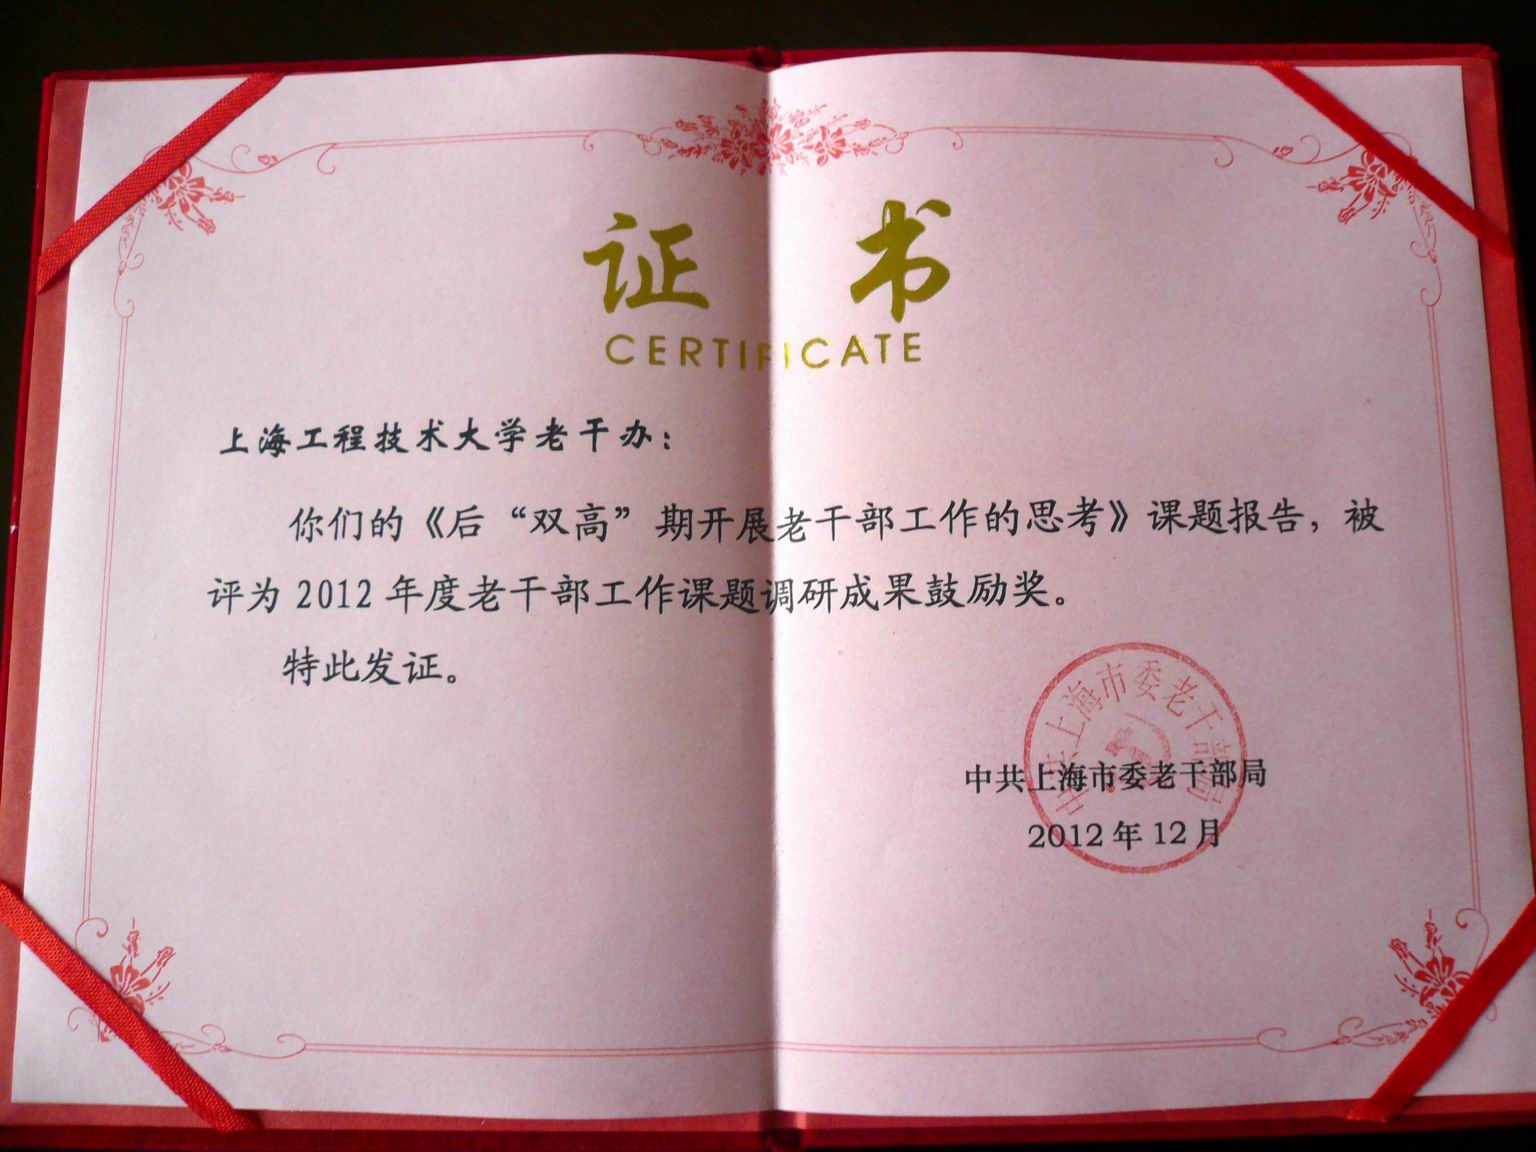 证 书
CERTIFICATE
上海工程技术大学老干办：
你们的《后“双高”期开展老干部工作的思考》课题报告，被
评为 2012 年度老干部工作课题调研成果鼓励奖。
特此发证。
中共上海市委老干部局
中共上海市委老干部局
2012 年 12 月